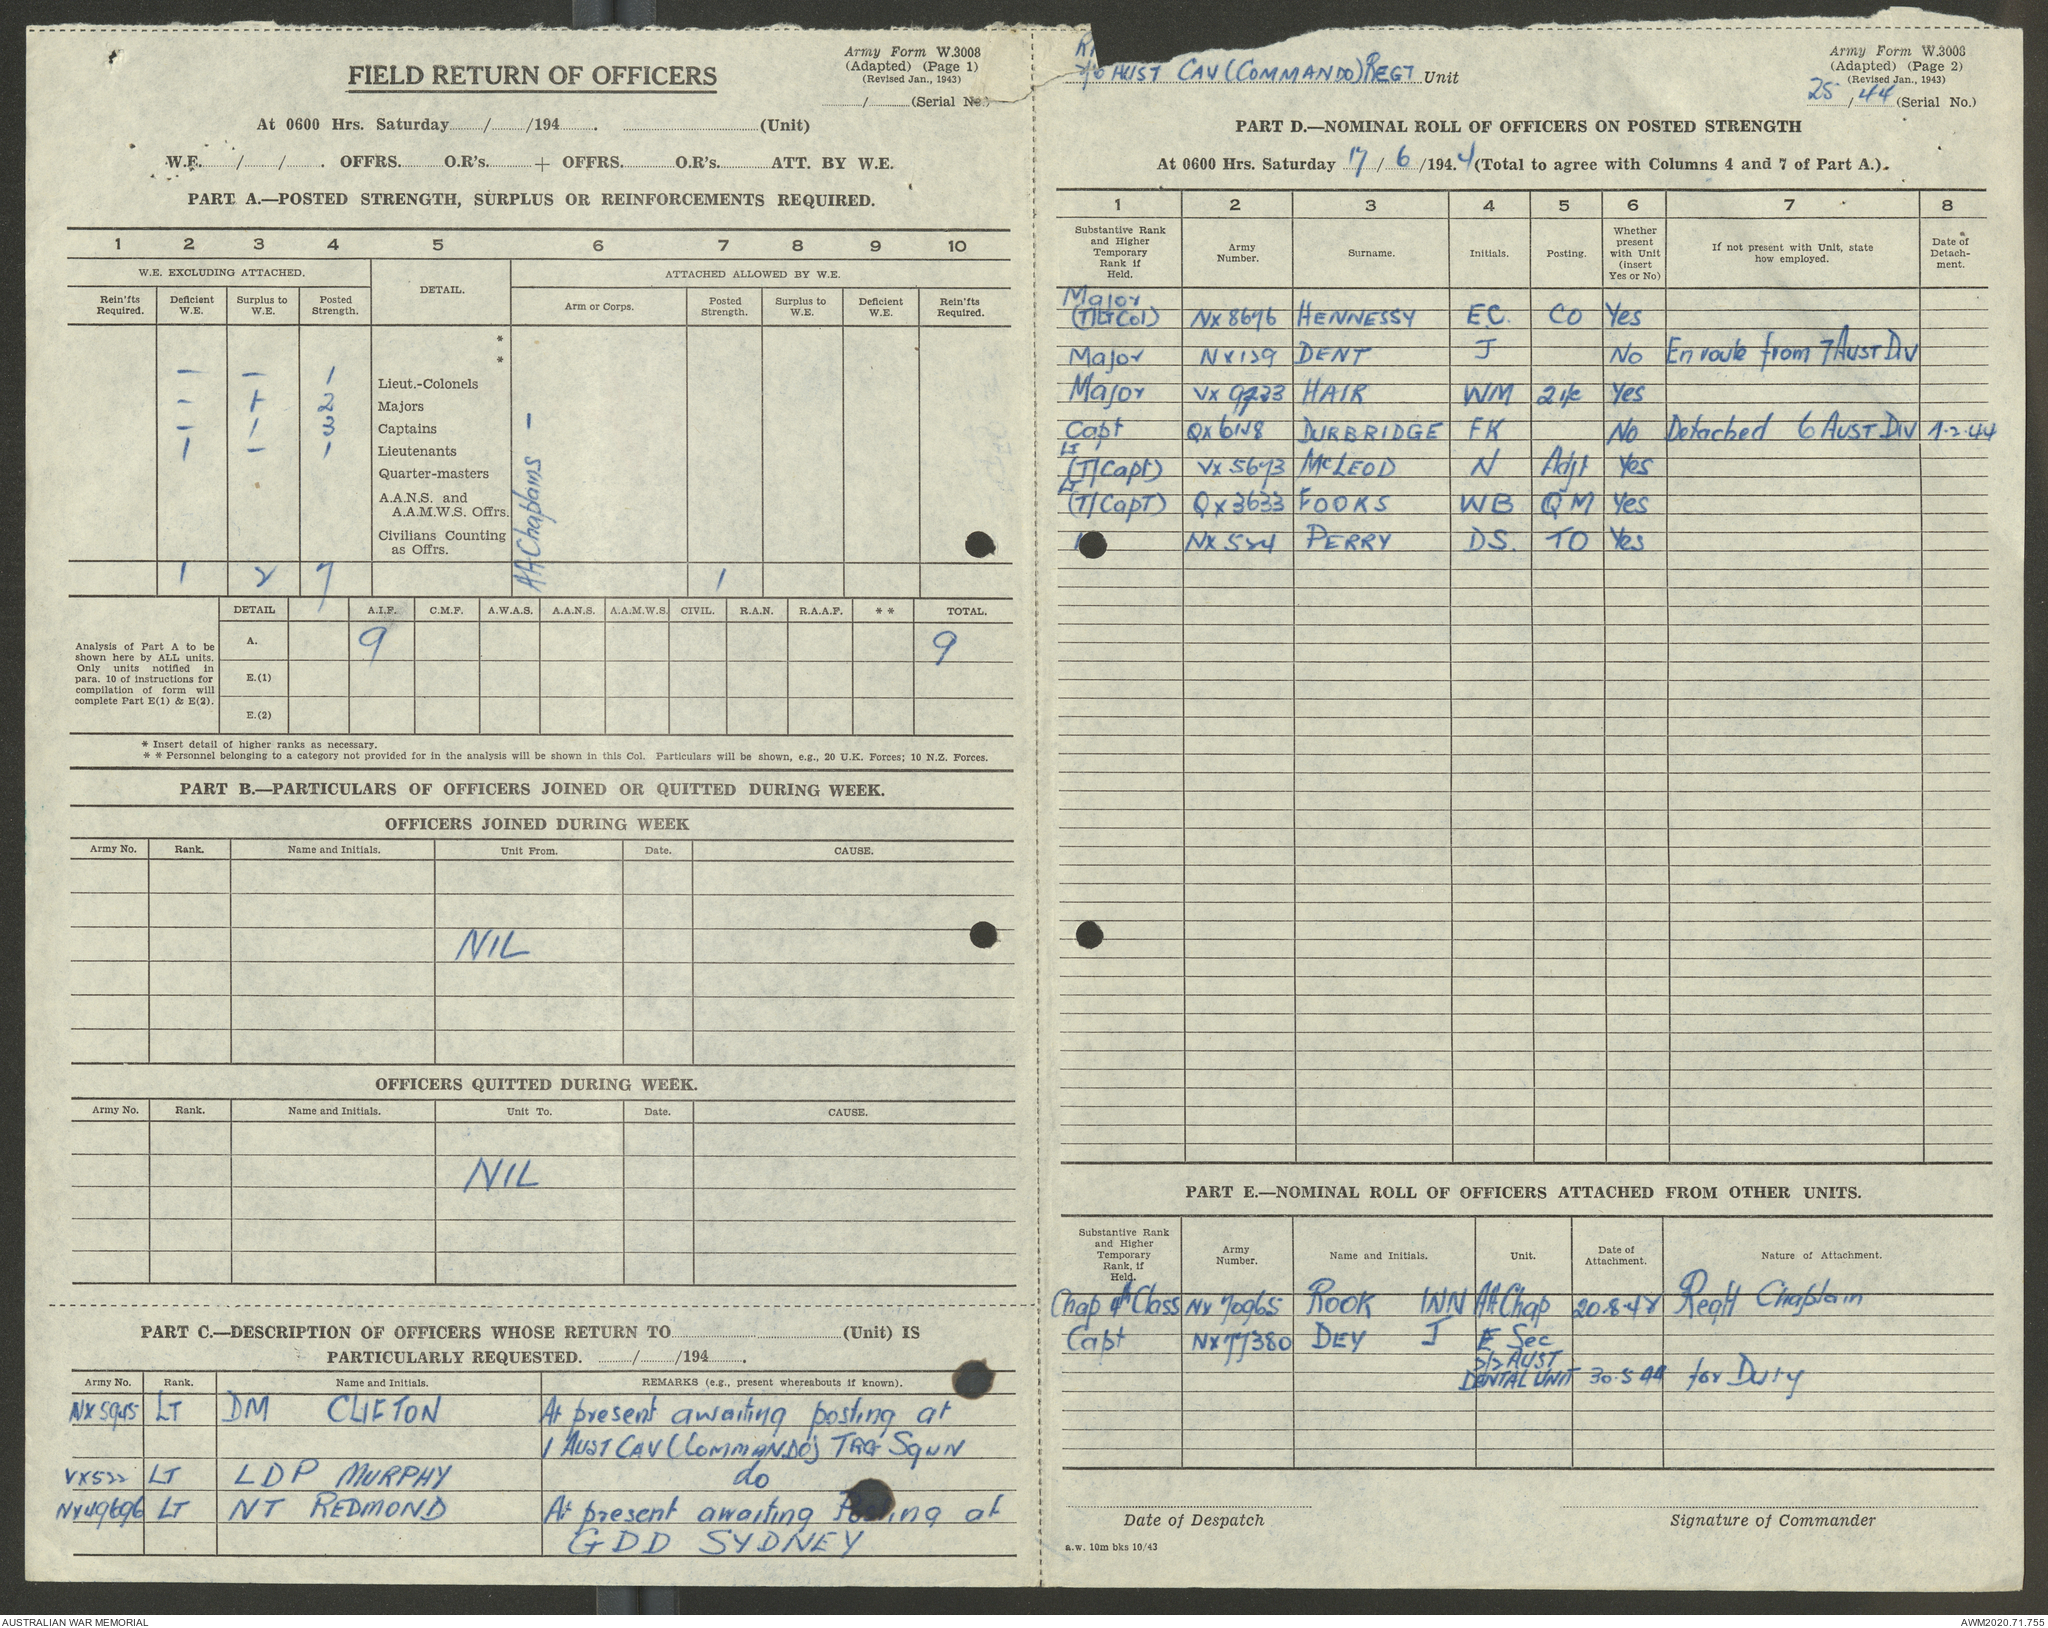 Army Form W.3008
(Adapted) (Page 1)
(Revised Jan., 1943)
FIELD RETURN OF OFFICERS
/ (Serial No.)
At 0600 Hrs. Saturday / /194 . (Unit)
W.E. / / . OFFRS. O.R's. + OFFRS. O.R's. ATT. BY W.E.
PART A.—POSTED STRENGTH, SURPLUS OR REINFORCEMENTS REQUIRED.
1 2 3 4 5 6 7 8 9 10
W.E. EXCLUDING ATTACHED. DETAIL. ATTACHED ALLOWED BY W.E.
Rein'fts Required. Deficient W.E. Surplus to W.E. Posted Strength. Arm or Corps. Posted Strength. Surplus to W.E. Deficient W.E. Rein'fts Required.
*
*
– – 1 Lieut.-Colonels
– 1 2 Majors
– 1 3 Captains
1 – 1 Lieutenants
Quarter-masters
A.A.N.S. and
A.A.M.W.S. Offrs.
Civilians Counting
as Offrs.
AA Chaplains –
1 2 7 1
DETAIL A.I.F. C.M.F. A.W.A.S. A.A.N.S. A.A.M.W.S. CIVIL. R.A.N. R.A.A.F. * * TOTAL.
Analysis of Part A to be
shown here by ALL units.
Only units notified in
para. 10 of instructions for
compilation of form will
complete Part E(1) & E(2).
A. 9 9
E.(1)
E.(2)
* Insert detail of higher ranks as necessary.
* * Personnel belonging to a category not provided for in the analysis will be shown in this Col. Particulars will be shown, e.g., 20 U.K. Forces; 10 N.Z. Forces.
PART B.—PARTICULARS OF OFFICERS JOINED OR QUITTED DURING WEEK.
OFFICERS JOINED DURING WEEK
Army No. Rank. Name and Initials. Unit From. Date. CAUSE.
NIL
OFFICERS QUITTED DURING WEEK.
Army No. Rank. Name and Initials. Unit To. Date. CAUSE.
NIL
PART C.—DESCRIPTION OF OFFICERS WHOSE RETURN TO (Unit) IS
PARTICULARLY REQUESTED. / /194 .
Army No. Rank. Name and Initials. REMARKS (e.g., present whereabouts if known).
LT DM CLIFTON At present awaiting posting at
1 AUST CAV (COMMANDO) TRG SQUN
VX522 LT LDP MURPHY do
NX49696 LT NT REDMOND At present awaiting Posting at
GDD SYDNEY
AUST CAV (COMMANDO) REGT Unit
Army Form W.3008
(Adapted) (Page 2)
(Revised Jan., 1943)
25 / 44 (Serial No.)
PART D.—NOMINAL ROLL OF OFFICERS ON POSTED STRENGTH
At 0600 Hrs. Saturday 17 / 6 /194 4 (Total to agree with Columns 4 and 7 of Part A.).
1 2 3 4 5 6 7 8
Substantive Rank and Higher Temporary Rank if Held. Army Number. Surname. Initials. Posting. Whether present with Unit (insert Yes or No) If not present with Unit, state how employed. Date of Detach-ment.
Major
(T/Lt Col) NX8676 HENNESSY E.C. CO Yes
Major NX129 DENT J No En route from 7 AUST DIV
Major VX9233 HAIR WM 2i/c Yes
Capt QX6128 DURBRIDGE FK No Detached 6 AUST DIV 1.2.44
Lt
(T/Capt) VX5673 McLEOD N Adjt Yes
Lt
(T/Capt) QX3633 FOOKS WB QM Yes
NX524 PERRY DS. TO Yes
PART E.—NOMINAL ROLL OF OFFICERS ATTACHED FROM OTHER UNITS.
Substantive Rank and Higher Temporary Rank, if Held. Army Number. Name and Initials. Unit. Date of Attachment. Nature of Attachment.
Chap 4th Class NX70965 ROOK INN AA Chap 20.8.42 Regtl Chaplain
Capt NX77380 DEY J E Sec
2/2 AUST
DENTAL UNIT 30.5.44 for Duty
Date of Despatch Signature of Commander
a.w. 10m bks 10/43
AUSTRALIAN WAR MEMORIAL AWM2020.71.755